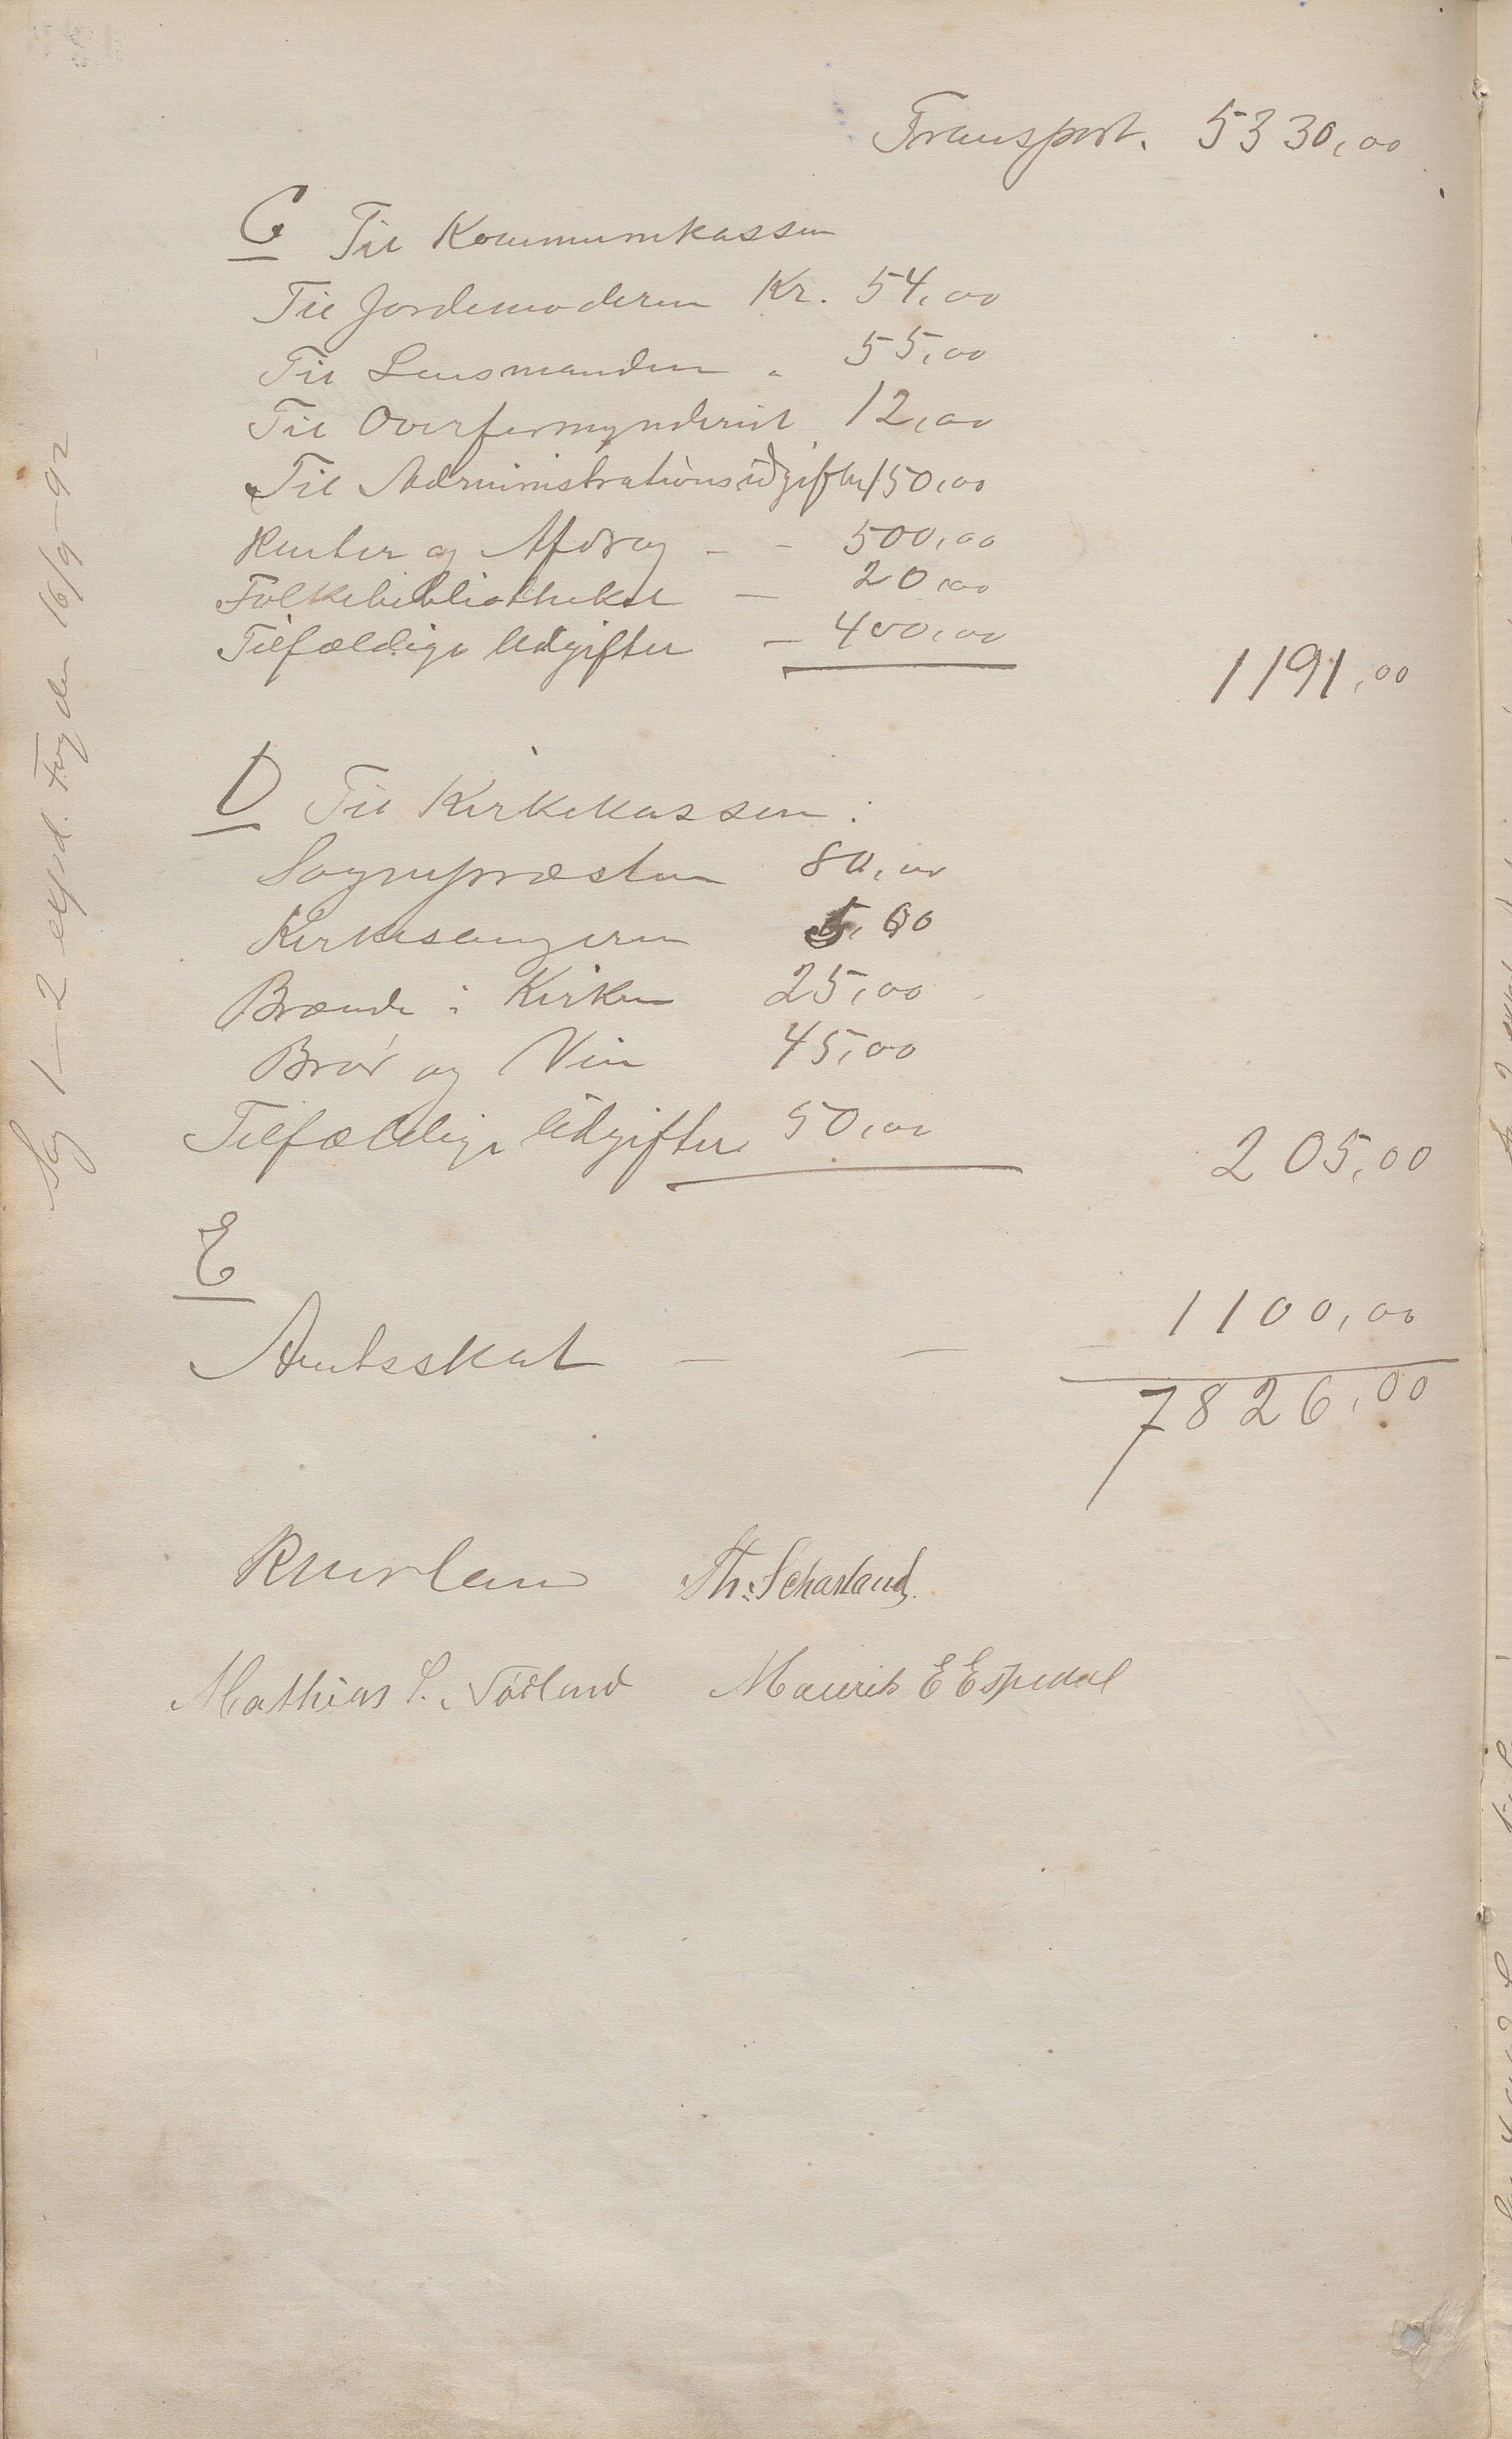 Transport. 5330,00
C Til Kommunekassen
Til Jordemoderen Kr. 54,00
Til Lensmanden " 55,00
Til Overformynderiet 12,00
Til Administrationsudgifter 150,00
Renter og Afdrag - - 500,00
Folkebibliotheket — 20,00
Tilfældige Udgifter — 400,00
1191,00
D Til Kirkekassen:
Sognepræsten 80,00
Kirkesangeren 5,00
Brænde i Kirken 25,00
Brød og Vin 45,00
Tilfældige Udgifter 50,00
205,00
E
Amtsskat — — — 1100,00
7826,00
Th. Schasland.
Mathias S. Nordland Maurits E Espedal
Sag 1–2 exp.d. Fogden 16/9–92